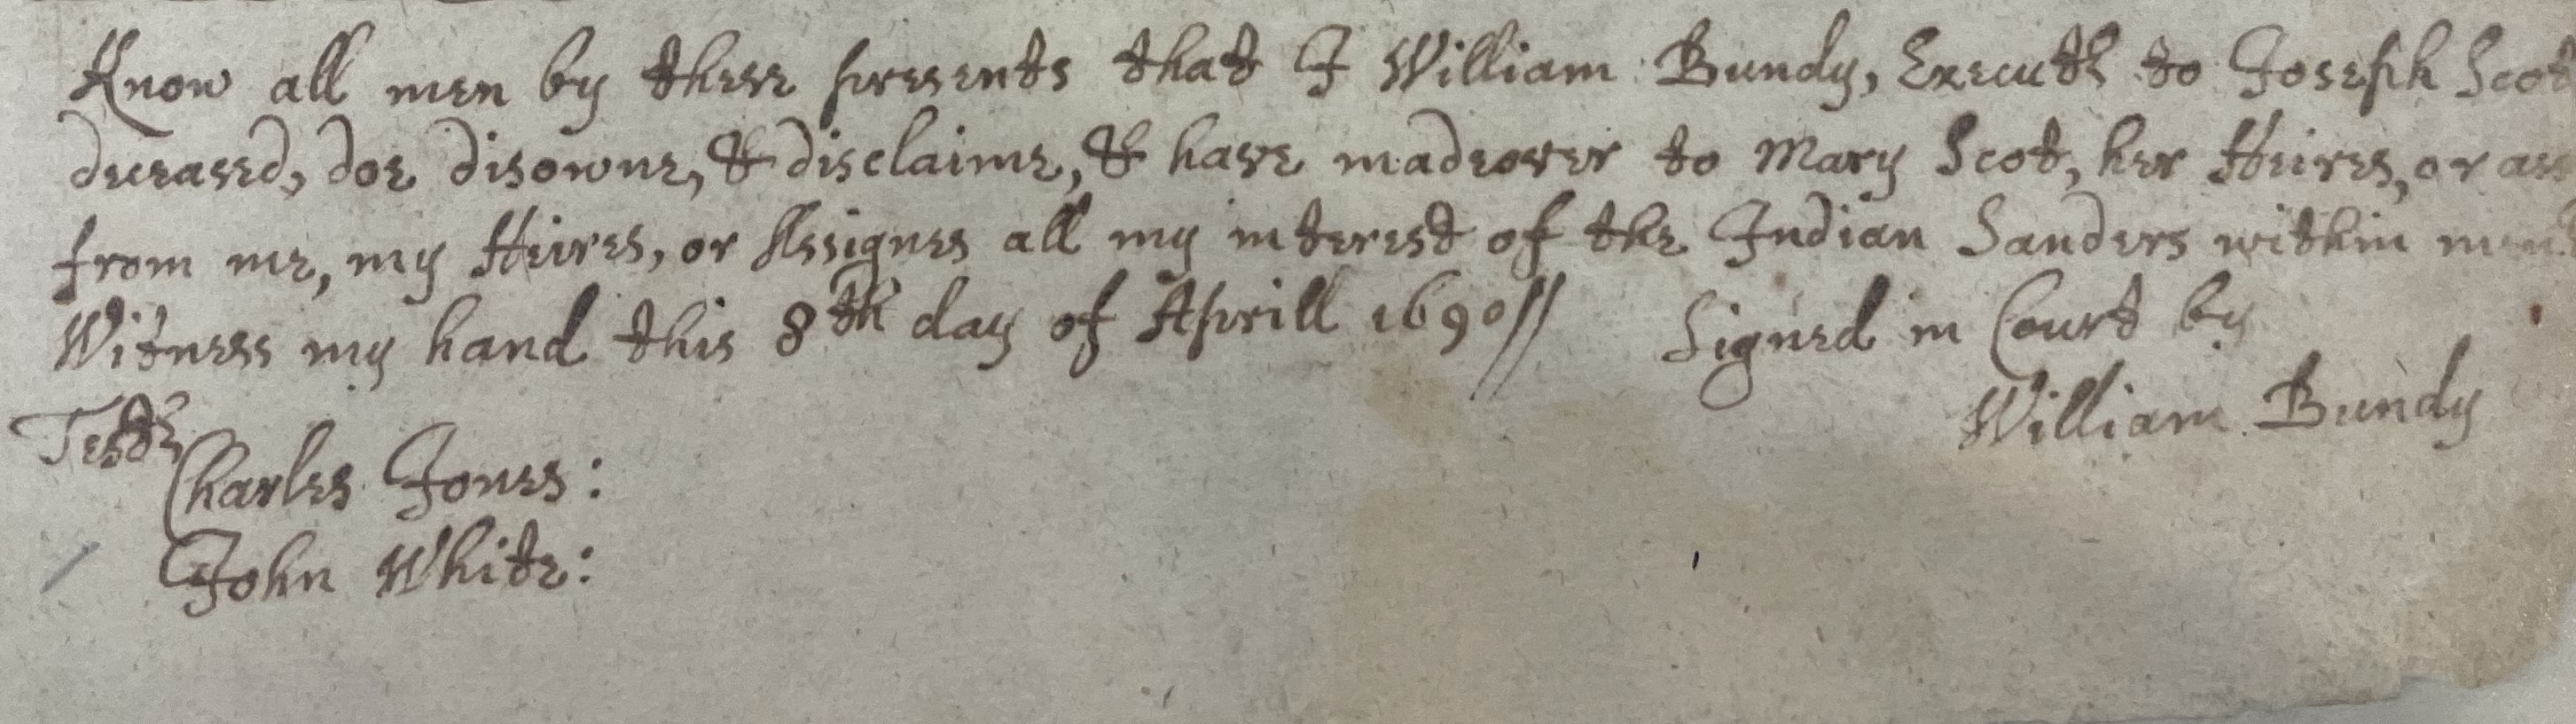 Know all men by these presents that I William Bundy, Executr to Joseph Scot
deceased, doe disowne, & disclaime, & have madeover to Mary Scot, her Heires, or ass
from me, my Heires, or Assignes all my interest of the Indian Sanders within ment
Witness my hand this 8th day of Aprill 1690// Signed in Court by
William Bundy
Teste
Charles Jones:
John White: